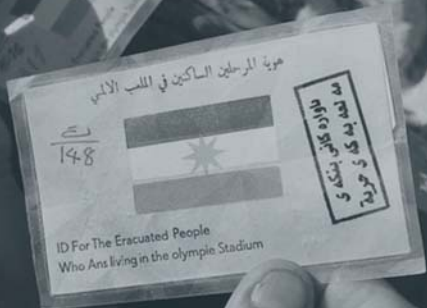 هوية المرحلين الساكنين في الملعب الالمي
ع
148
ئاواره كانى بنكه ى
مه لعه به كه ى حرية
ID For The Eracuated People
Who Ans living in the olympie Stadium